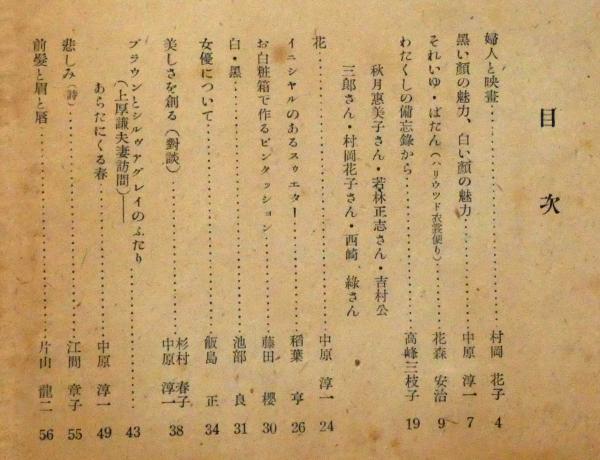 目次
婦人と映畫……村岡 花子 4
黑い顏の魅力、白い顏の魅力……中原 淳一 7
それいゆ・ぱたん(ハリウッド衣裳便り)……花森 安治 9
わたくしの備忘錄から……高峰三枝子 19
秋月惠美子さん・若林正志さん・吉村公
三郎さん・村岡花子さん・西崎 綠さん
花……中原 淳一 24
イニシヤルのあるスウエター……稻葉 亨 26
お白粧箱で作るピンクッション……藤田 櫻 30
白・黑……池部 良 31
女優について……飯島 正 34
美しさを創る(對談)……杉村 春子
中原 淳一 38
ブラウンとシルヴァグレイのふたり……43
(上厚謙夫妻訪問)――
あらたにくる春……中原 淳一 49
悲しみ(詩)……江間 章子 55
前髮と眉と唇……片山 龍二 56